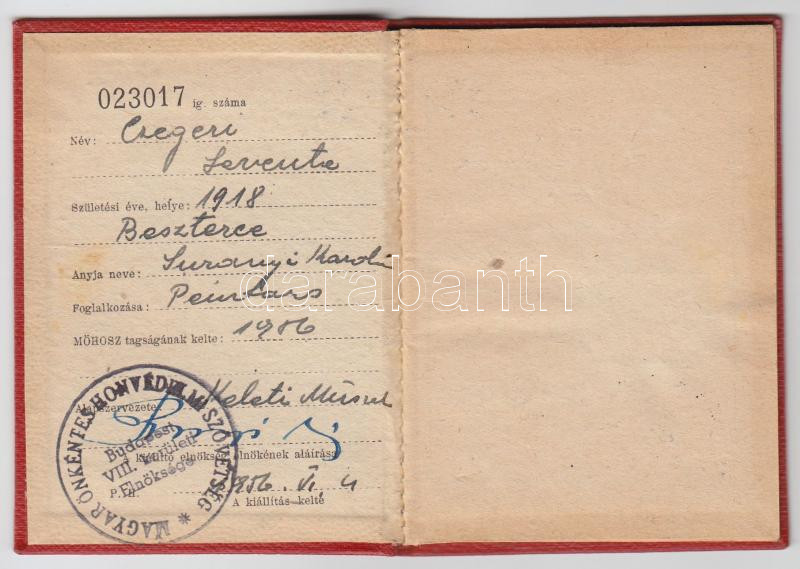 023017 ig. száma
Név: Csegeri
Levente
Születési éve, helye: 1918
Beszterce
Anyja neve: Surányi
Foglalkozása:
MÖHOSZ tagságának kelte: 1956
Alapszervezete: Keleti
A kiállító elnökség elnökének aláírása
1956. VI.
A kiállítás kelte
P. H.
MAGYAR ÖNKÉNTES HONVÉDELMI SZÖVETSÉG *
Budapest
VIII. kerületi
Elnöksége
darabanth